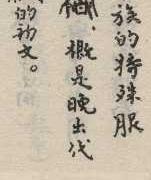 族的特殊服
概是晚出代
的初文。